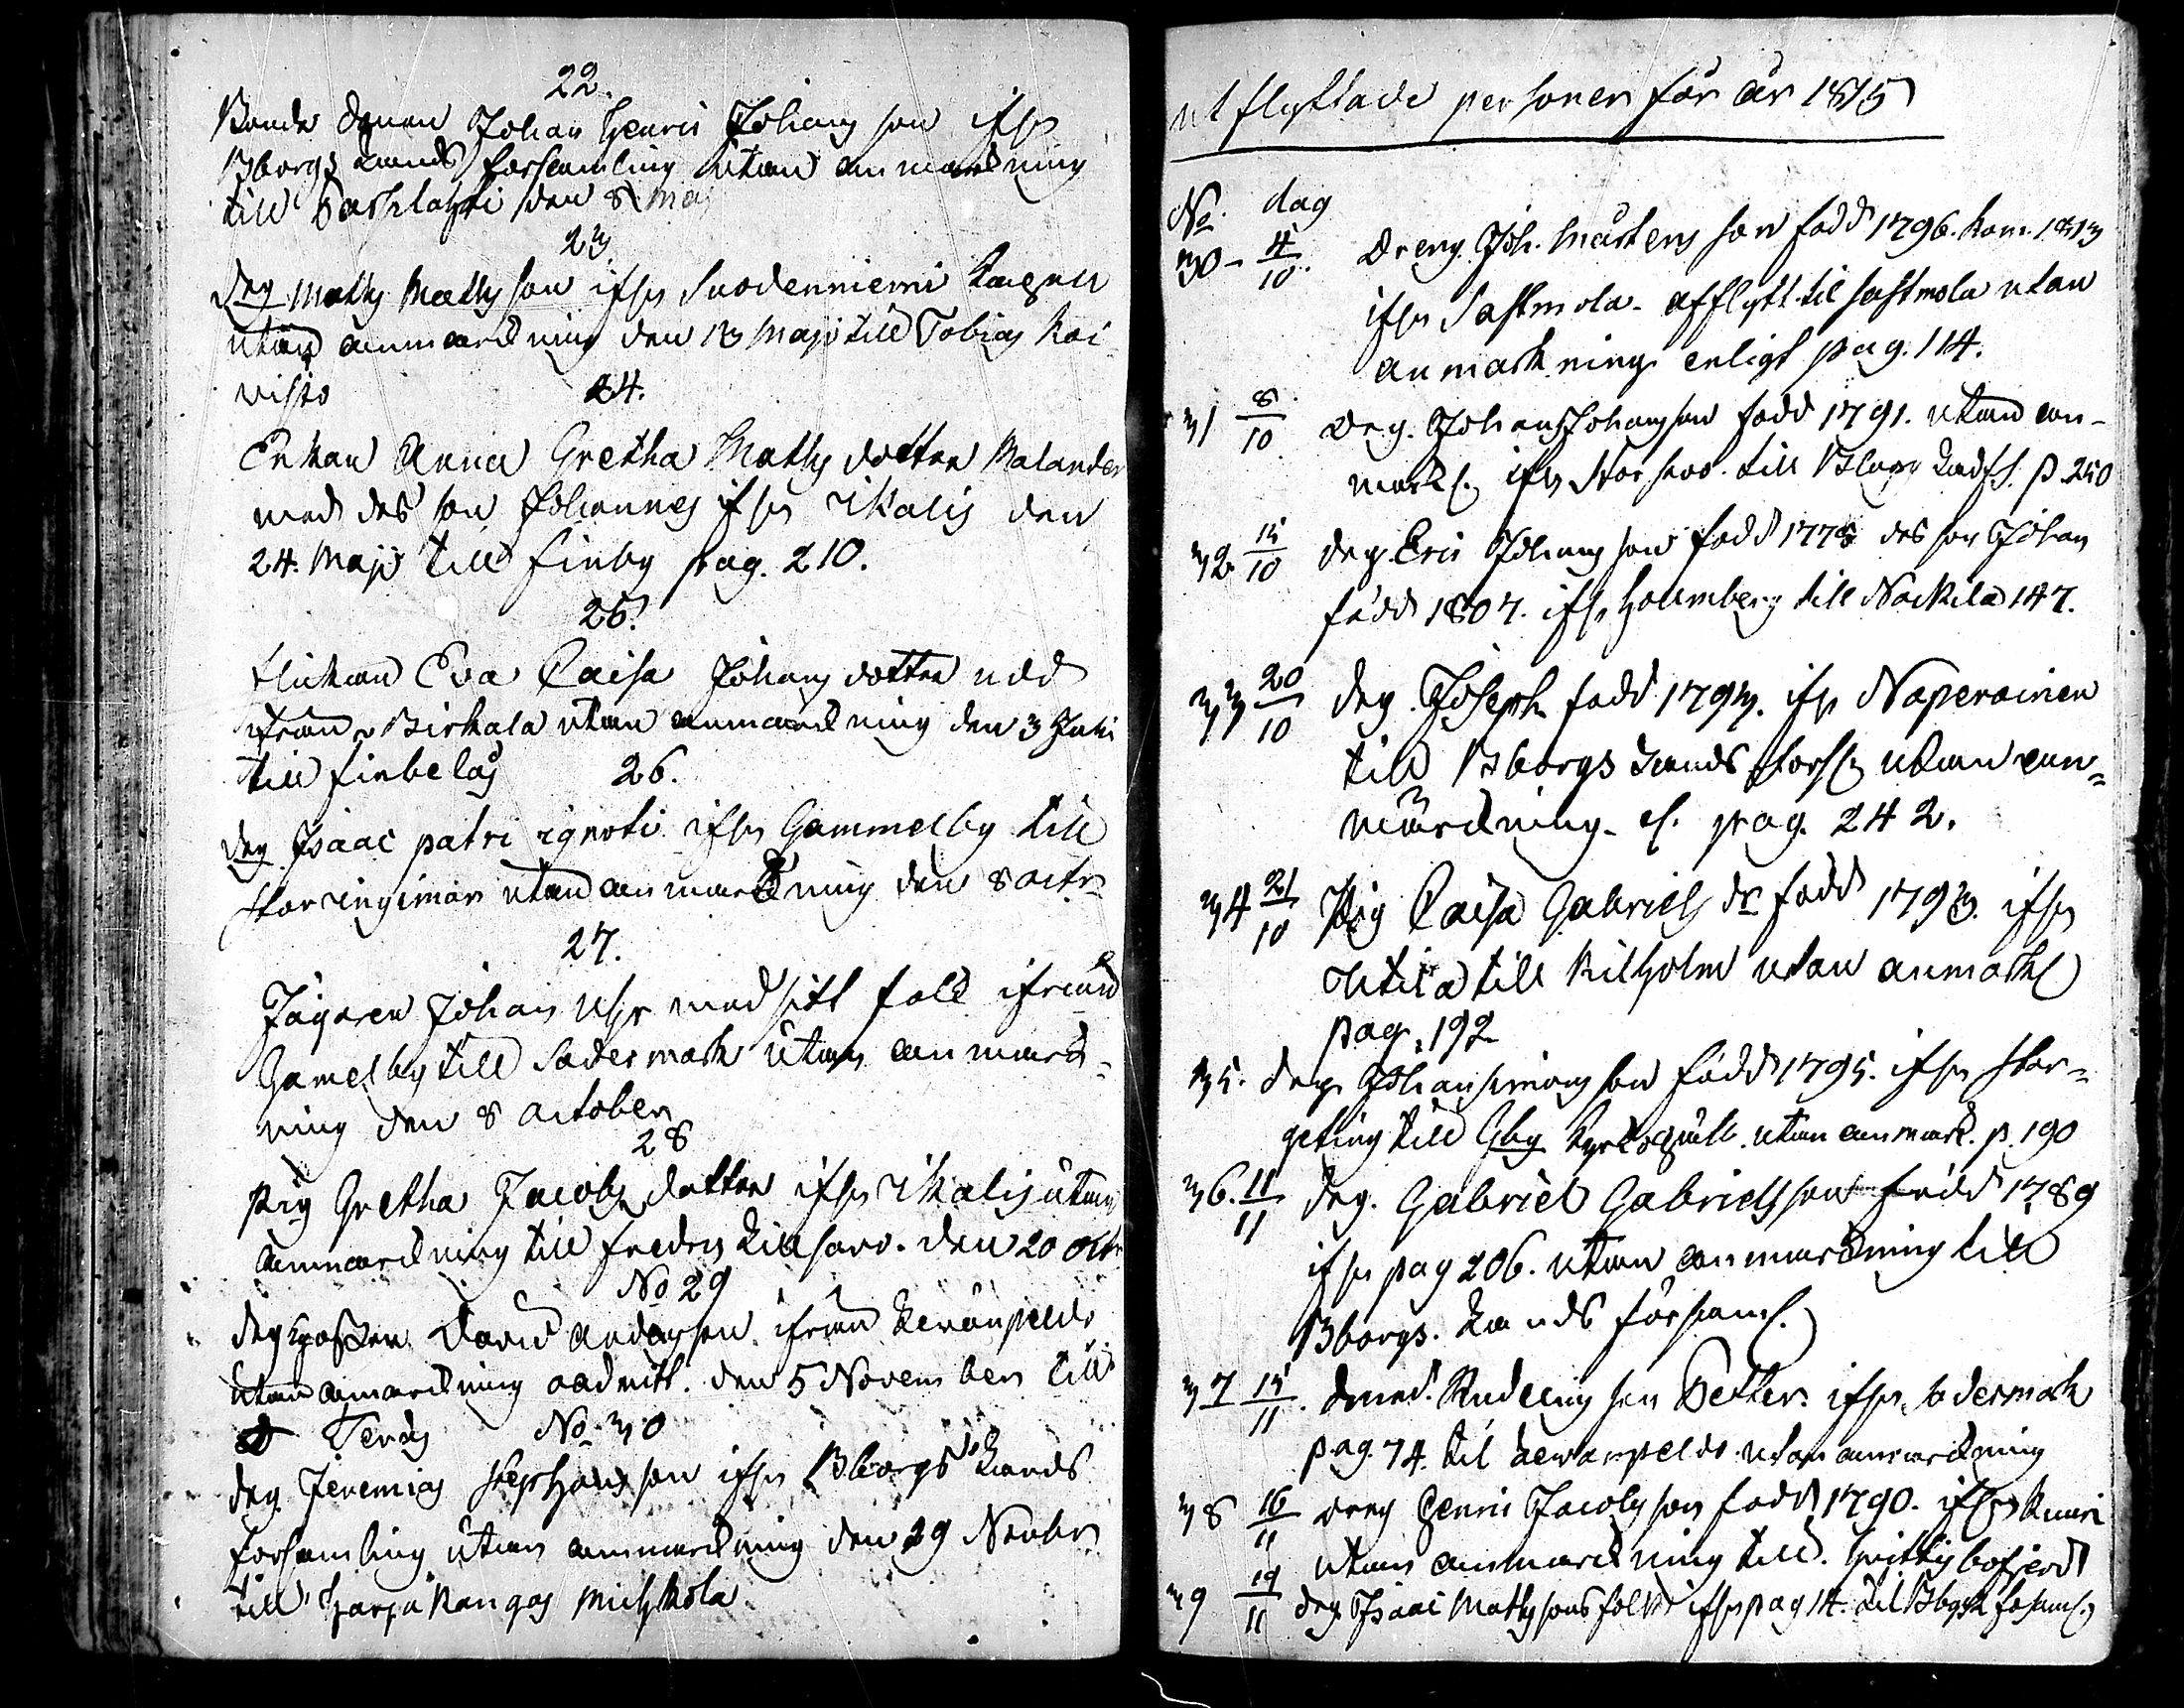 22.
Bonde Johan Henric Johans son ifrn
Bborgs Lands forsamling utan anmarkning
till den 8 maj
23.
drg Matts Matts son ifrn Suodenniemi Capell
utan anmarkning den 13 Maji till Tobias Koi
visto
24.
Enkan Anna Gretha Matts dotter Malander
med des son Johannes ifrn Ikalis den
24. Maji till Finby pag. 210.
25.
flickan Eva Caisa Johans dotter
ifrån Birkala utan anmarkning den 3 Juni
till
26.
drg Isaac patri ignoti ifrn Gammelby till
utan anmarkning den 8 octr
27.
Jägaren Johan med sitt folk ifrån
Gamelby till Sodermark utan anmark-
ning den 8 october
28
Pig Gretha Jacobs dotter ifrn Ikalis utan
anmarkning till Fredric den 20 octr
No 29
drg David Anderson ifrån Levanpeldo
utan anmarkning admitt. den 5 November till
Terds
No 30
drg Jeremias Stephans son ifrn Bborgs Lands
Forsamling utan anmarkning den 29 Novbr
till Harjakangas
utflyttade personer för år 1815
No. dag
30 - 4/10. Dreng Joh. Mårtens son fodd 1796. kom. 1813
ifrn Sastmola - afflytt til Sastmola utan
anmarkning enligt pag. 114.
31 8/10 Drg. Johan Johans son fodd 1791. utan an-
mark. ifrn till p. 250
32 15/10 drg. Eric Johans son fodd 1778 des son Johan
född 1807. ifrn Holmberg till Nackila 147.
33 20/10 drg. Joseph fodd 1793. ifrn Noperoinen
till Bborgs Lands forsl utan an-
märkning. cf. pag. 242.
34 21/10 Pig Caisa Gabriels dr fodd 1793. ifrn
till Kilholm utan anmark
pag. 192
35. drg Johan Simons son född 1795. ifrn Stor-
till Gby utan anmark. p. 190
36. 11/11 drg. Gabriel Gabriels son född 1789
ifrn pag 206. utan anmarkning till
Bborgs. Lands församl.
37 15/11. son Petter. ifrn Sodermark
pag. 74. til Lewanpeldo utan anmarkning
38 16/11 dreng Henric Jacobs son fodd 1790. ifrn
utan anmarkning till.
39 19/11 drg Isaac Matts sons folk ifrn pag 14. til forsaml.